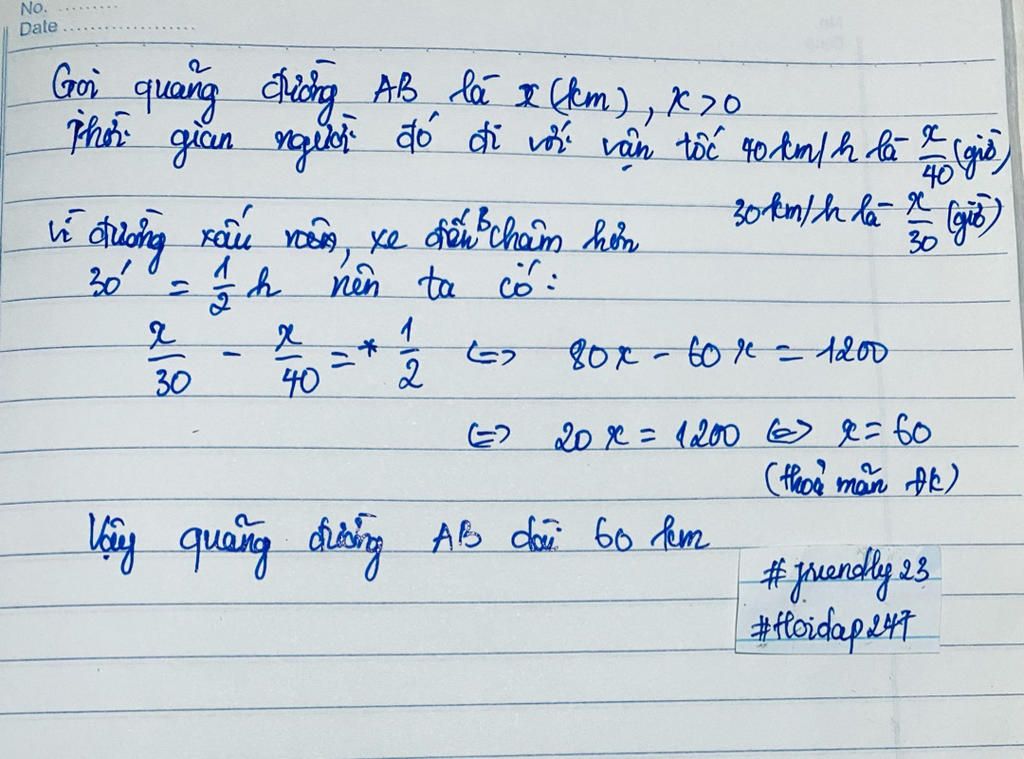 No. .........
Date .....................
Gọi quãng đường AB là x (km), x > 0
Thời gian người đó đi với vận tốc 40 km/h là x/40 (giờ)
30 km/h là x/30 (giờ)
Vì đường xấu nên, xe đến B chậm hơn
30' = 1/2 h nên ta có:
x/30 - x/40 = * 1/2 <=> 80x - 60x = 1200
<=> 20x = 1200 <=> x = 60
(thoả mãn đk)
Vậy quãng đường AB dài 60 km
#friendly23
#Hoidap247